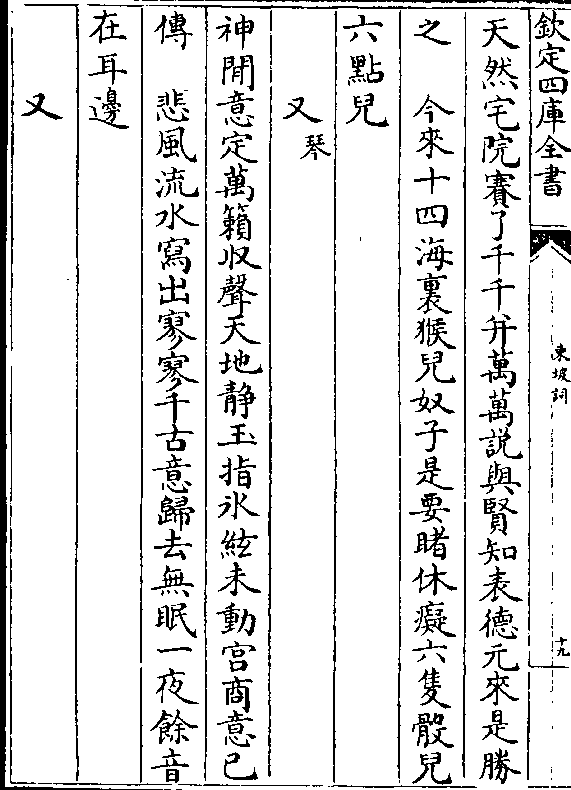 欽定四庫全書
東坡詞
十九
天然宅院賽了千千并萬萬説與賢知表德元來是勝
之　今來十四海裏猴兒奴子是要賭休癡六隻骰兒
六點兒
又琴
神閒意定萬籟収聲天地静玉指氷絃未動宫商意已
傳　悲風流水寫出寥寥千古意歸去無眠一夜餘音
在耳邊
又